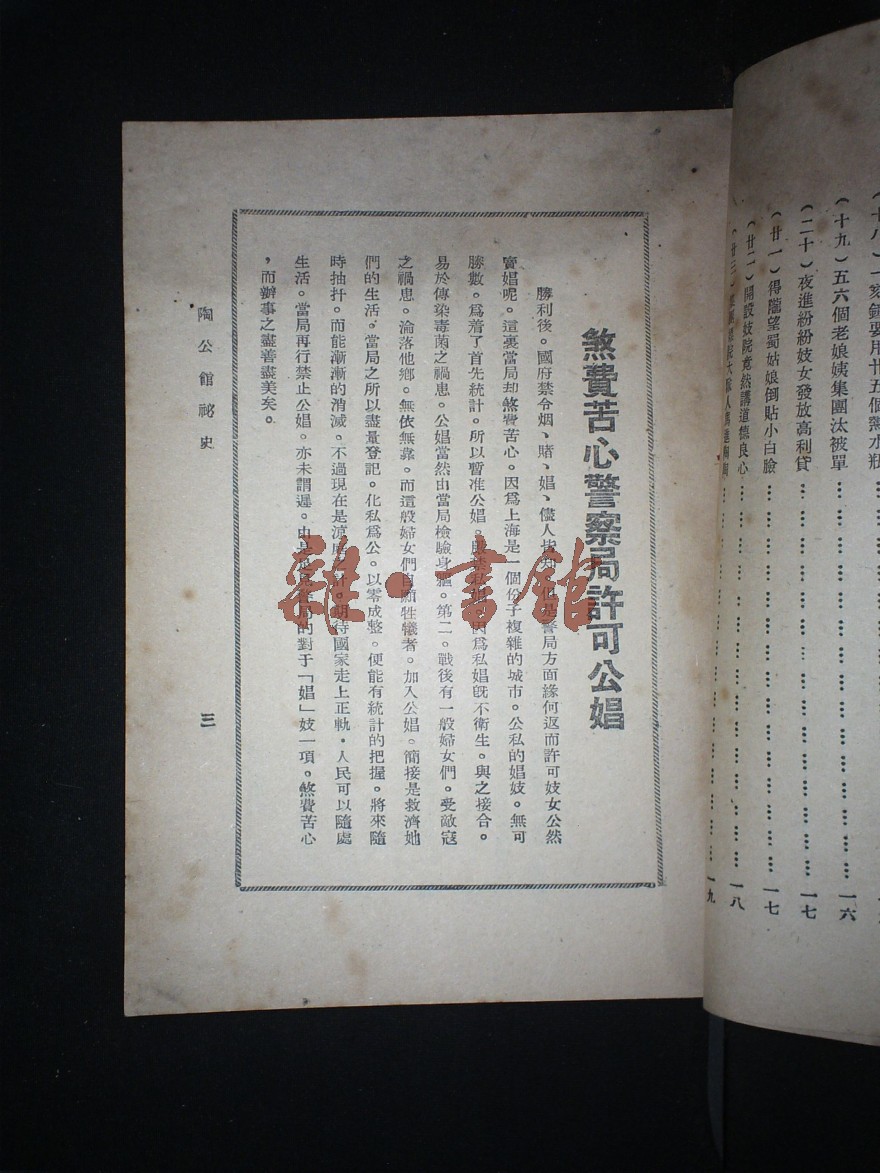 (十九)五六個老娘姨集團汰被單……一六
(二十)夜進紛紛妓女發放高利貸……一七
(廿一)得隴望蜀姑娘倒貼小白臉……一七
(廿二)開設妓院竟然講道德良心……一八
一九
煞費苦心警察局許可公娼
勝利後。國府禁令烟、賭、娼、儘人皆知。但是警局方面緣何返而許可妓女公然
賣娼呢。這裏當局却煞費苦心。因爲上海是一個份子複雜的城市。公私的娼妓。無可
勝數。爲着了首先統計。所以暫准公娼。嚴禁私娼。因爲私娼旣不衛生。與之接合。
易於傳染毒菌之禍患。公娼當然由當局檢驗身體。第二。戰後有一般婦女們。受敵寇
之禍患。淪落他鄉。無依無靠。而這般婦女們自願牲犧者。加入公娼。簡接是救濟她
們的生活。當局之所以盡量登記。化私爲公。以零成整。便能有統計的把握。將來隨
時抽扦。而能漸漸的消滅。不過現在是 之計。期待國家走上正軌。人民可以隨處
生活。當局再行禁止公娼。亦未謂遲。由是 局的對于「娼」妓一項。煞費苦心
,而辦事之盡善盡美矣。
陶公館祕史
三
雜·書館